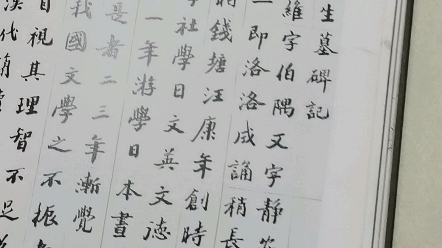 生墓碑記
維字伯隅又字靜安
一即洛洛成誦稍長
錢塘汪康年創時
社學日文英文德
一年游學日本晝
長者二三年漸覺
我國文學之不振
自視其理智不足
漢代